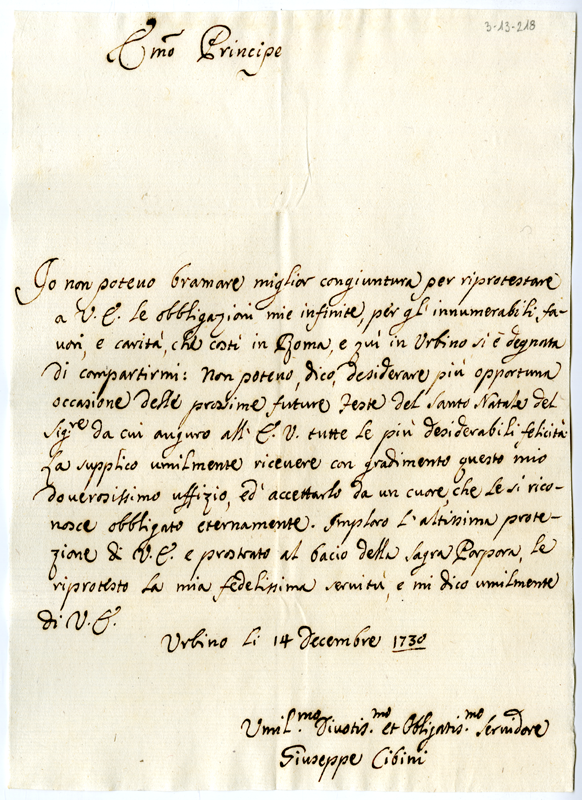 3-13-218
E.mo Principe
Io non potevo bramare miglior congiuntura per riprotestare
a V. E. le obbligazioni mie infinite, per gl' innumerabili fa-
vori, e carità, che costì in Roma, e quì in Urbino si è degnata
di compartirmi: Non potevo, dico, desiderare più opportuna
occasione delle prossime future Feste del Santo Natale del
Sig.re da cui auguro all' E. V. tutte le più desiderabili felicità.
La supplico umilmente ricevere con gradimento questo mio
doverosissimo uffizio, ed' accettarlo da un cuore, che le si rico-
nosce obbligato eternamente. Imploro l' altissima prote-
zione di V. E. e prostrato al bacio della Sagra Porpora, le
riprotesto la mia fedelissima servitù, e mi dico umilmente
di V. E.
Urbino li 14 Decembre 1730
Umil.mo Divotis.mo et Obligatis.mo Servidore
Giuseppe Cibini